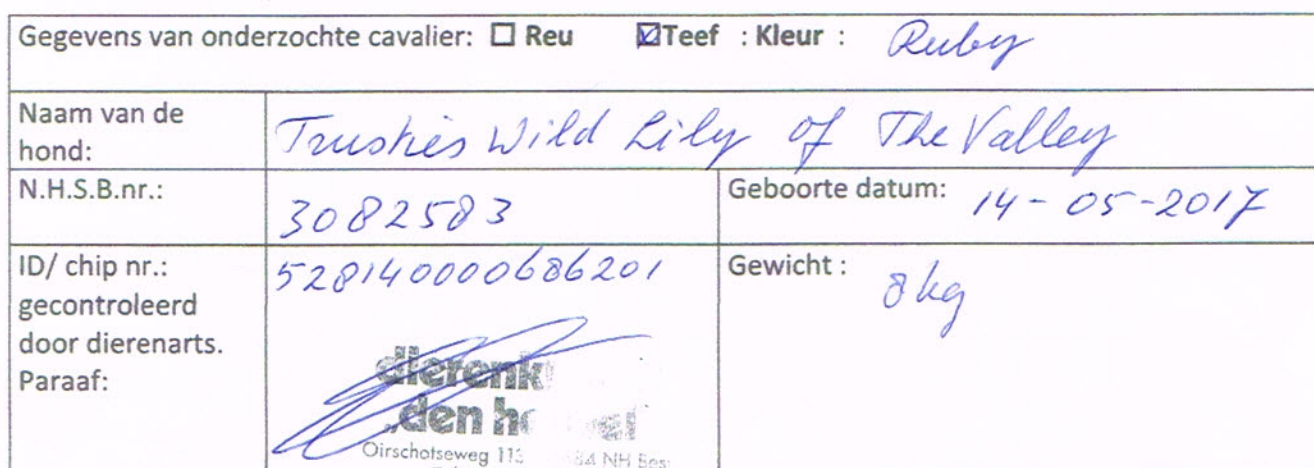 Gegevens van onderzochte cavalier: ☐ Reu ☑Teef : Kleur : Ruby
Naam van de hond:
Trusties Wild Lily of The Valley
N.H.S.B.nr.:
3082583
Geboorte datum: 14-05-2017
ID/ chip nr.:
gecontroleerd
door dierenarts.
Paraaf:
528140000686201
Gewicht : 8 kg
„den
Oirschotseweg 113
NH